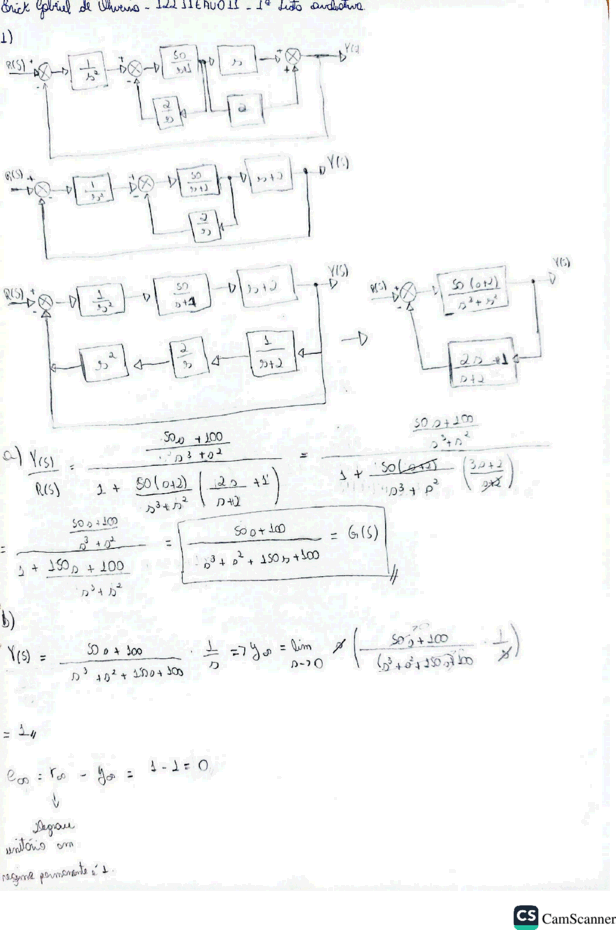 Erick Gabriel de Oliveira - 12211EAU011 - 1ª Lista avaliativa
1)
R(s) + - 1/s² + - 50/s+1 s + + Y(s)
2/s 2
R(s) + - 1/s² + - 50/s+1 s+2 Y(s)
2/s
R(s) + - 1/s² 50/s+1 s+2 Y(s)
s² 2/s 1/s+2
R(s) + - 50(s+2)/s³+s² Y(s)
2s/s+2 +1
a) Y(s)/R(s) = (50s+100/s³+s²)/(1 + 50(s+2)/s³+s² (2s/s+2 + 1)) = (50s+100/s³+s²)/(1 + 50(s+2)/s³+s² (3s+2/s+2))
= (50s+100/s³+s²)/(1 + 150s+100/s³+s²) = 50s+100/s³+s²+150s+100 = G(s)
b)
Y(s) = 50s+100/s³+s²+150s+100 · 1/s => y∞ = lim s→0 s (50s+100/s³+s²+150s+100 · 1/s)
= 1
e∞ = r∞ - y∞ = 1 - 1 = 0
Degrau
unitário em
regime permanente é 1.
CS CamScanner